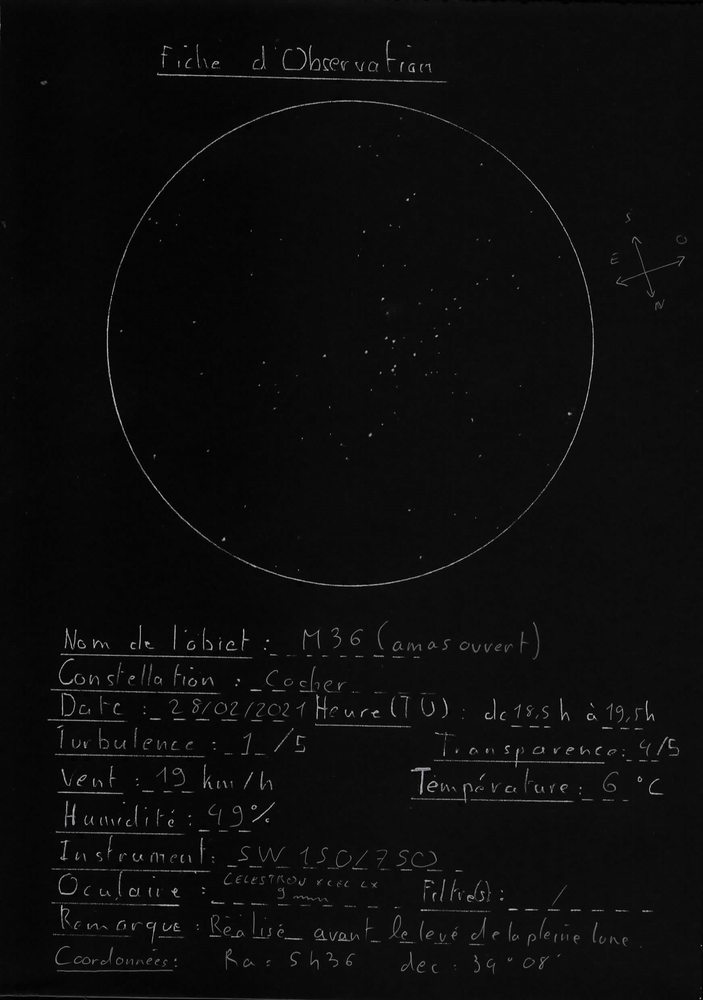 Fiche d'Observation
S
O
E
N
Nom de l'objet : M36 (amas ouvert)
Constellation : Cocher
Date : 28/02/2021 Heure (TU) : de 18,5h à 19,5h
Turbulence : 1 /5 Transparence : 4/5
Vent : 19 km/h Température : 6 °C
Humidité : 49%
Instrument : SW 150/750
Oculaire : CELESTRON XCEL LX 9 mm Filtre(s) : /
Remarque : Réalisé avant le levé de la pleine lune.
Coordonnées : Ra : 5h36 dec : 34°08'